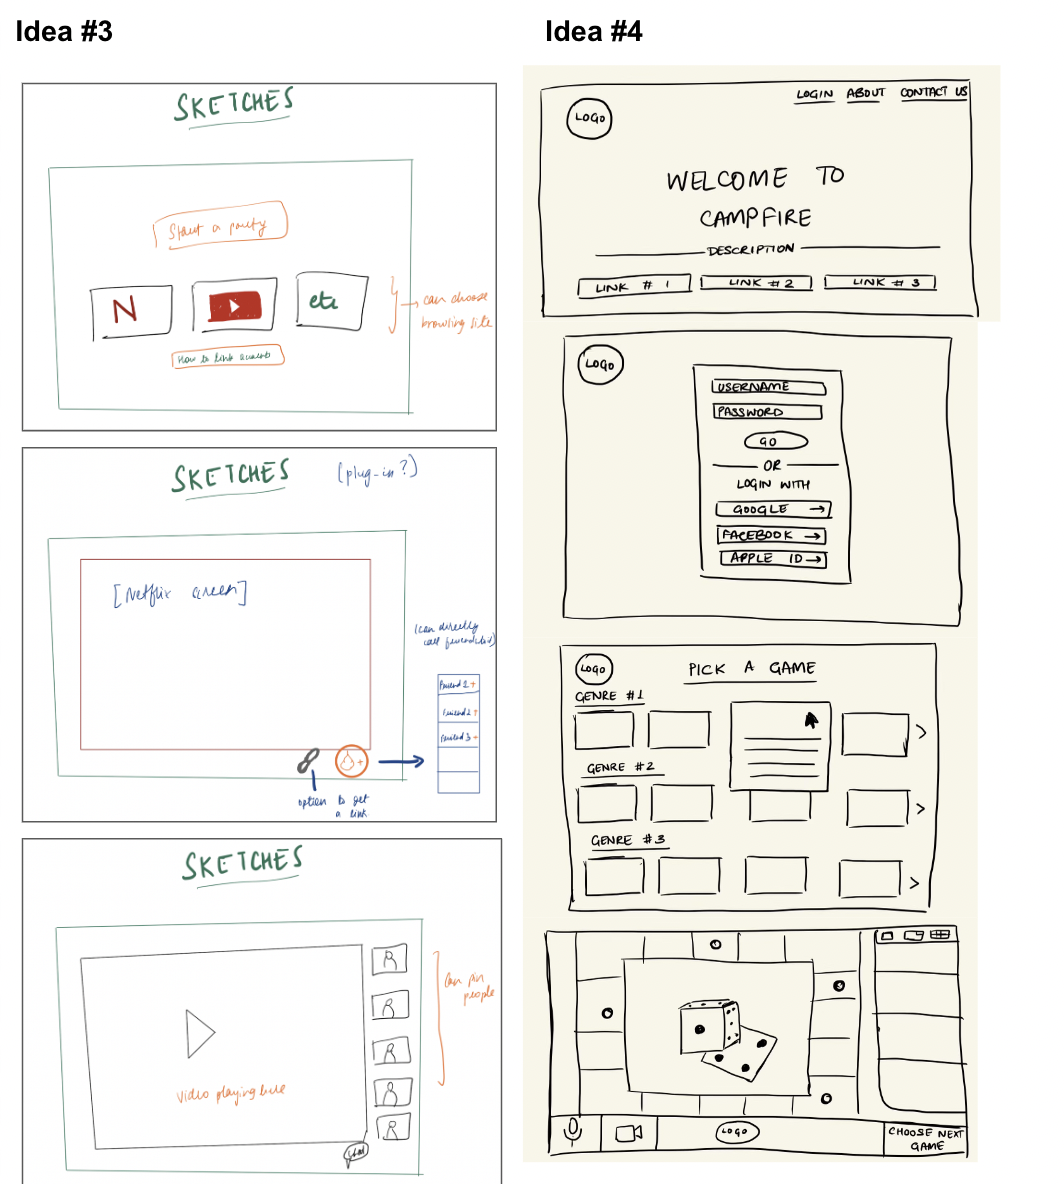 Idea #3
SKETCHES
Start a party
N
etc
can choose
browsing site
How to link accounts
SKETCHES
(plug-in?)
[Netflix screen]
(can directly
call friends list)
Friend 1 +
Friend 2 +
Friend 3 +
+
option to get
a link
SKETCHES
can pin
people
video playing here
chat
Idea #4
LOGIN ABOUT CONTACT US
LOGO
WELCOME TO
CAMPFIRE
DESCRIPTION
LINK # 1 LINK # 2 LINK # 3
LOGO
USERNAME
PASSWORD
GO
OR
LOGIN WITH
GOOGLE →
FACEBOOK →
APPLE ID →
LOGO
PICK A GAME
GENRE #1
GENRE #2
GENRE #3
LOGO
CHOOSE NEXT
GAME